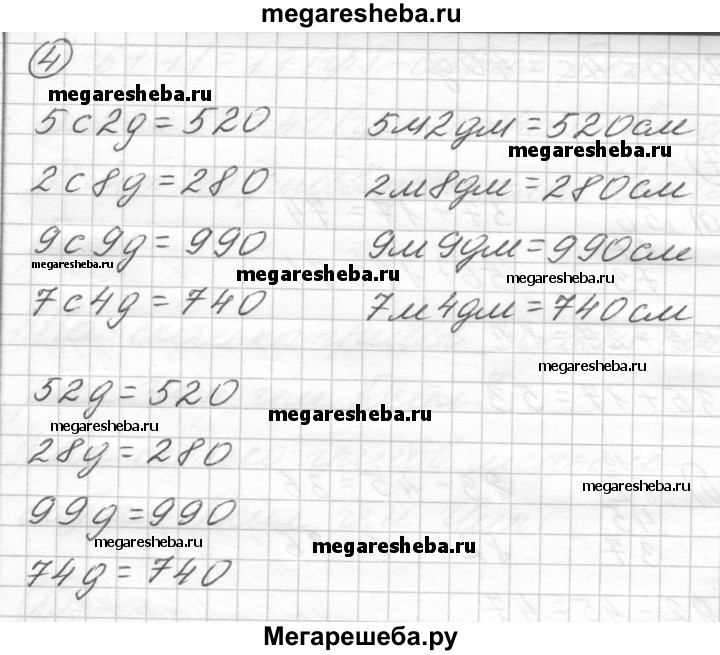 megaresheba.ru
4
megaresheba.ru
5с2д = 520 5м2дм = 520см
megaresheba.ru
2с8д = 280 2м8дм = 280см
9с9д = 990 9м9дм = 990см
megaresheba.ru megaresheba.ru megaresheba.ru
7с4д = 740 7м4дм = 740см
megaresheba.ru
52д = 520
megaresheba.ru
megaresheba.ru
28д = 280
megaresheba.ru
99д = 990
megaresheba.ru megaresheba.ru
74д = 740
Мегарешеба.ру